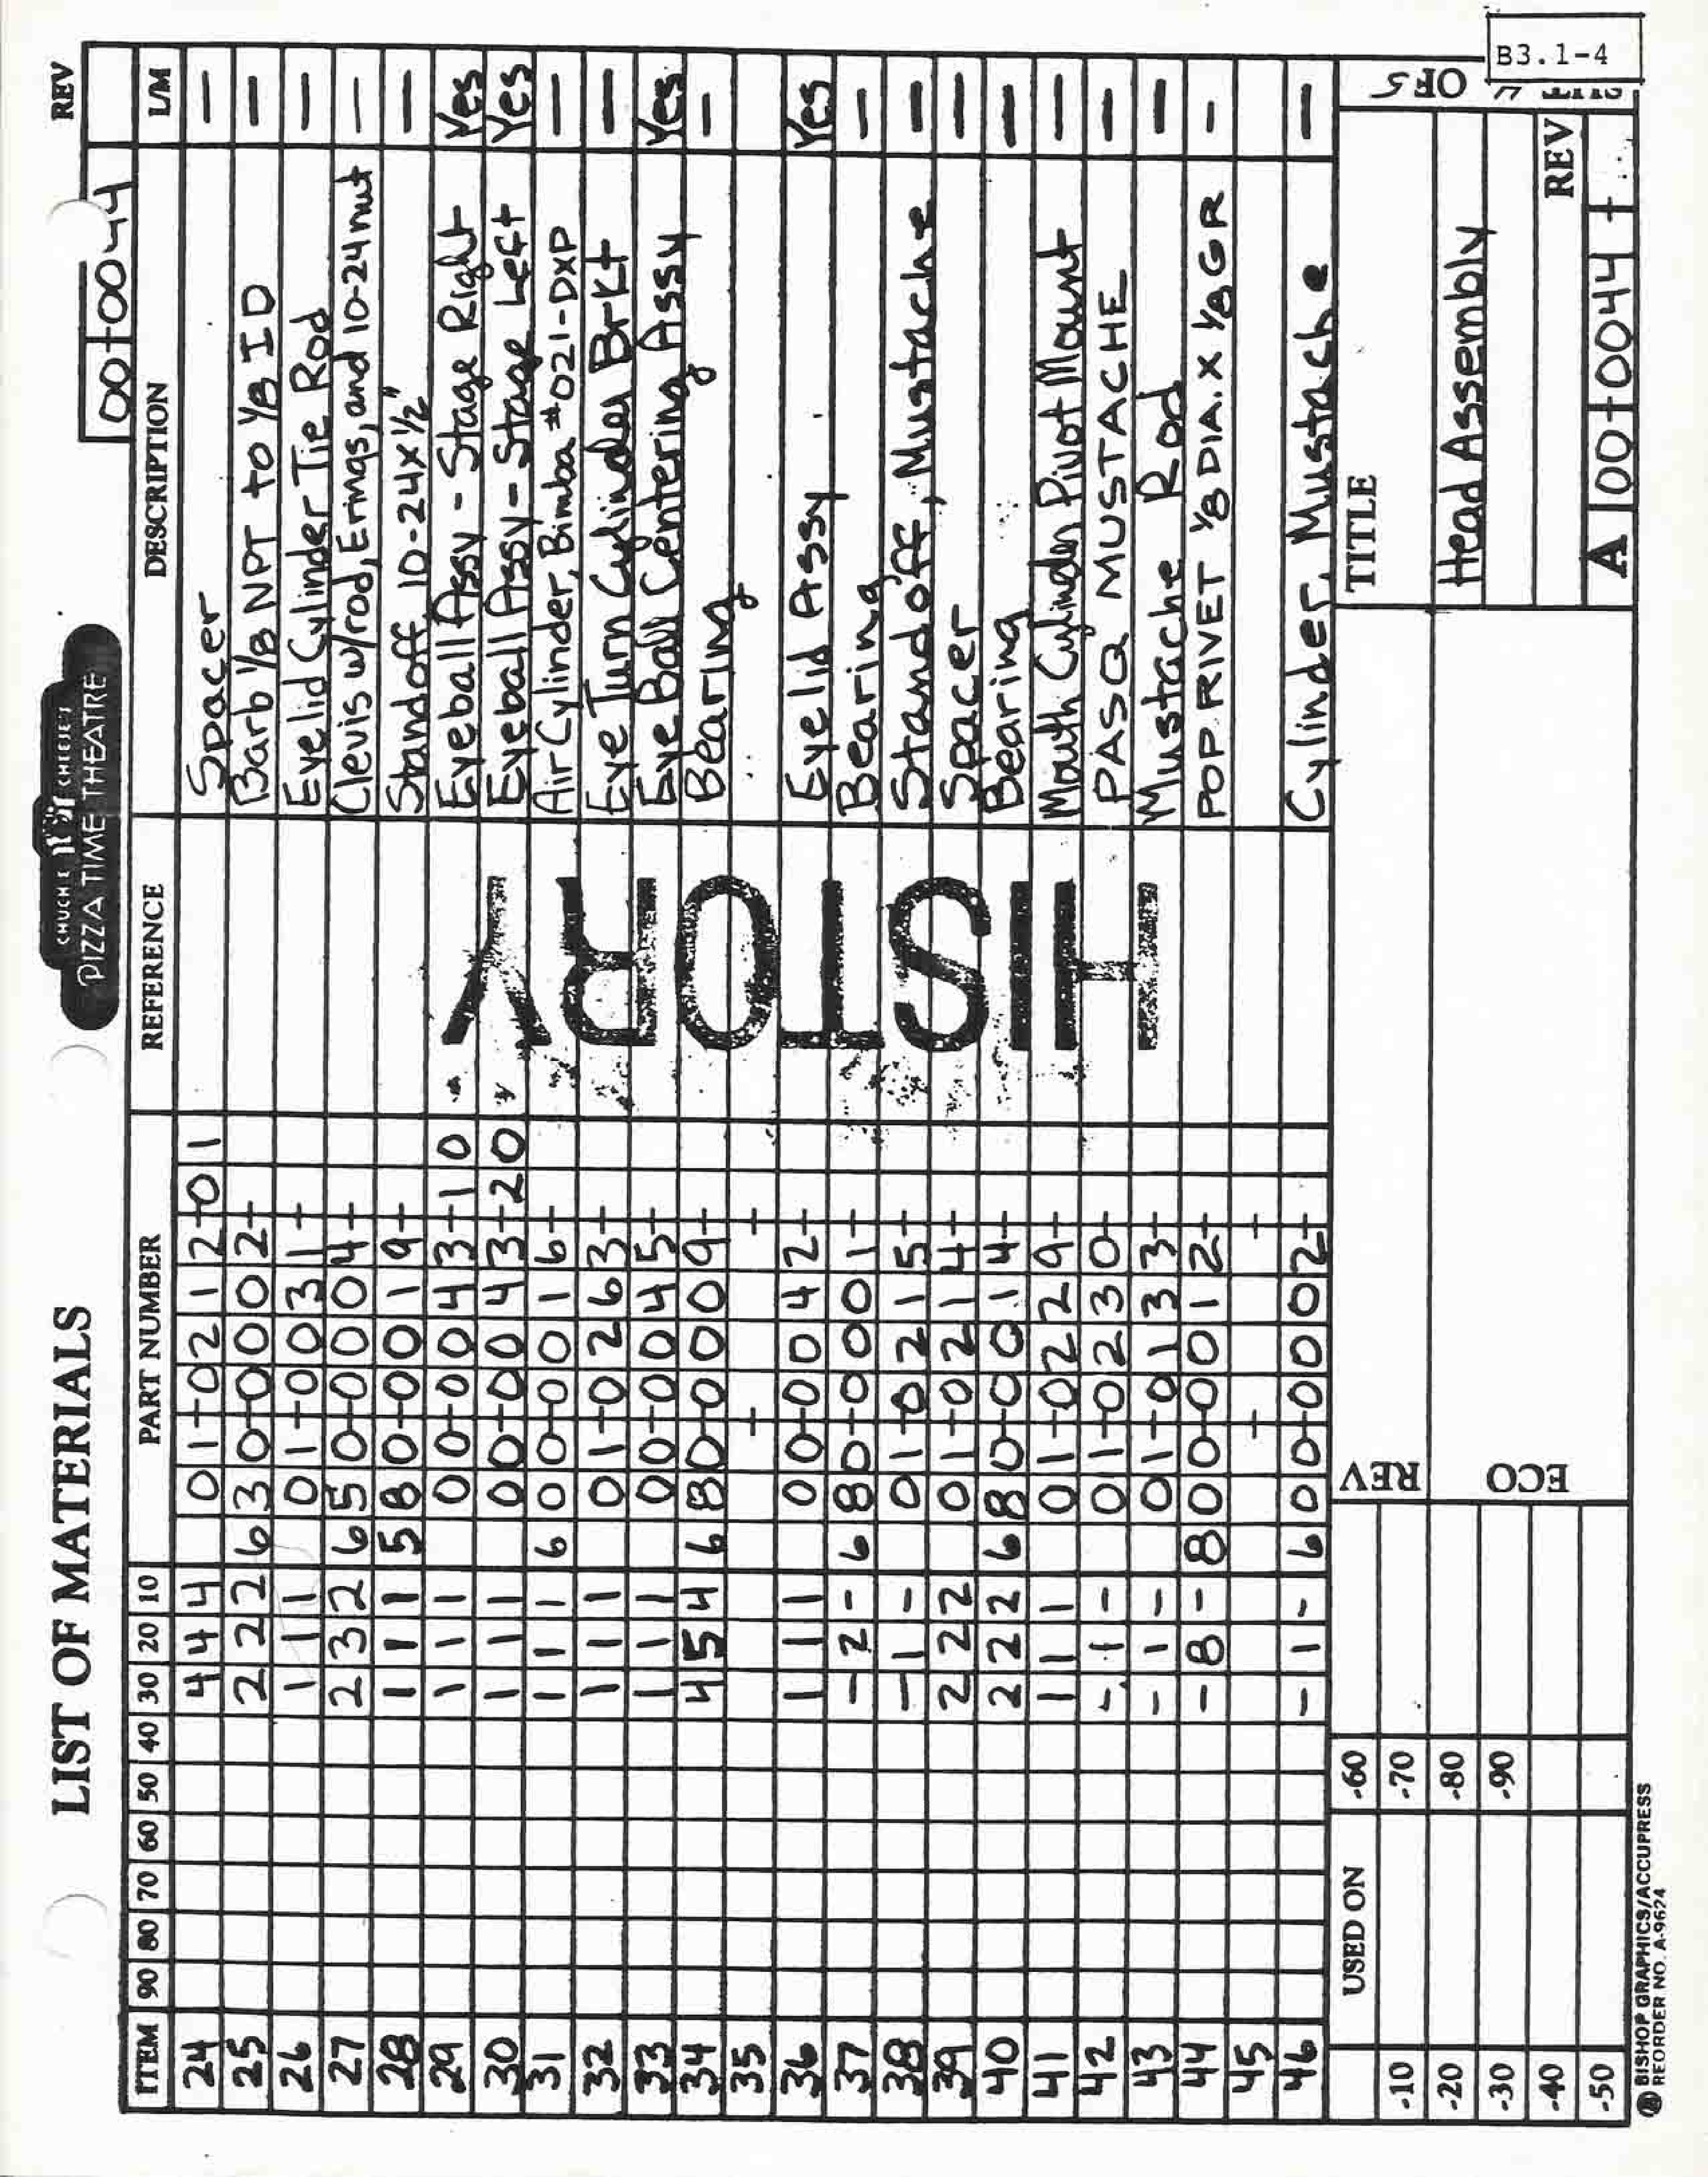 CHUCK E. CHEESE'S
PIZZA TIME THEATRE
LIST OF MATERIALS
REV
00+0044
ITEM 90 80 70 60 50 40 30 20 10 PART NUMBER REFERENCE DESCRIPTION L/M
24 4 4 4 01+02112+01 Spacer —
25 2 2 2 630+00002+ Barb 1/8 NPT to 1/8 ID —
26 1 1 1 01+0031+ Eyelid Cylinder Tie Rod —
27 2 3 2 650+00004+ Clevis w/rod, Erings, and 10-24 nut —
28 1 1 1 580+00019+ Standoff 10-24 x 1/2" —
29 1 1 1 00+00043+10 Eyeball Assy - Stage Right Yes
30 1 1 1 00+00043+20 Eyeball Assy - Stage Left Yes
31 1 1 1 600+00016+ Air Cylinder, Bimba #021-DXP —
32 1 1 1 01+0263+ Eye Turn Cylinder Brkt —
33 1 1 1 00+0045+ Eye Ball Centering Assy Yes
34 4 5 4 680+00009+ Bearing —
35 + +
36 1 1 1 00+0042+ Eyelid Assy Yes
37 - 2 - 680+00001+ Bearing —
38 - 1 - 01+0215+ Standoff, Mustache —
39 2 2 2 01+0214+ Spacer —
40 2 2 2 680+00014+ Bearing —
41 1 1 1 01+0229+ Mouth Cylinder Pivot Mount —
42 - 1 - 01+0230+ PASQ MUSTACHE —
43 - 1 - 01+0133+ Mustache Rod —
44 - 8 - 800+00012+ POP RIVET 1/8 DIA. X 1/8 GR —
45 + +
46 - 1 - 600+00002+ Cylinder, Mustache —
HISTORY
USED ON
-10 -60
-20 -70
-30 -80
-40 -90
-50
REV
ECO
TITLE
Head Assembly
OF 5
REV
A 00+0044+
B3.1-4
BISHOP GRAPHICS/ACCUPRESS
REORDER NO. A-9624